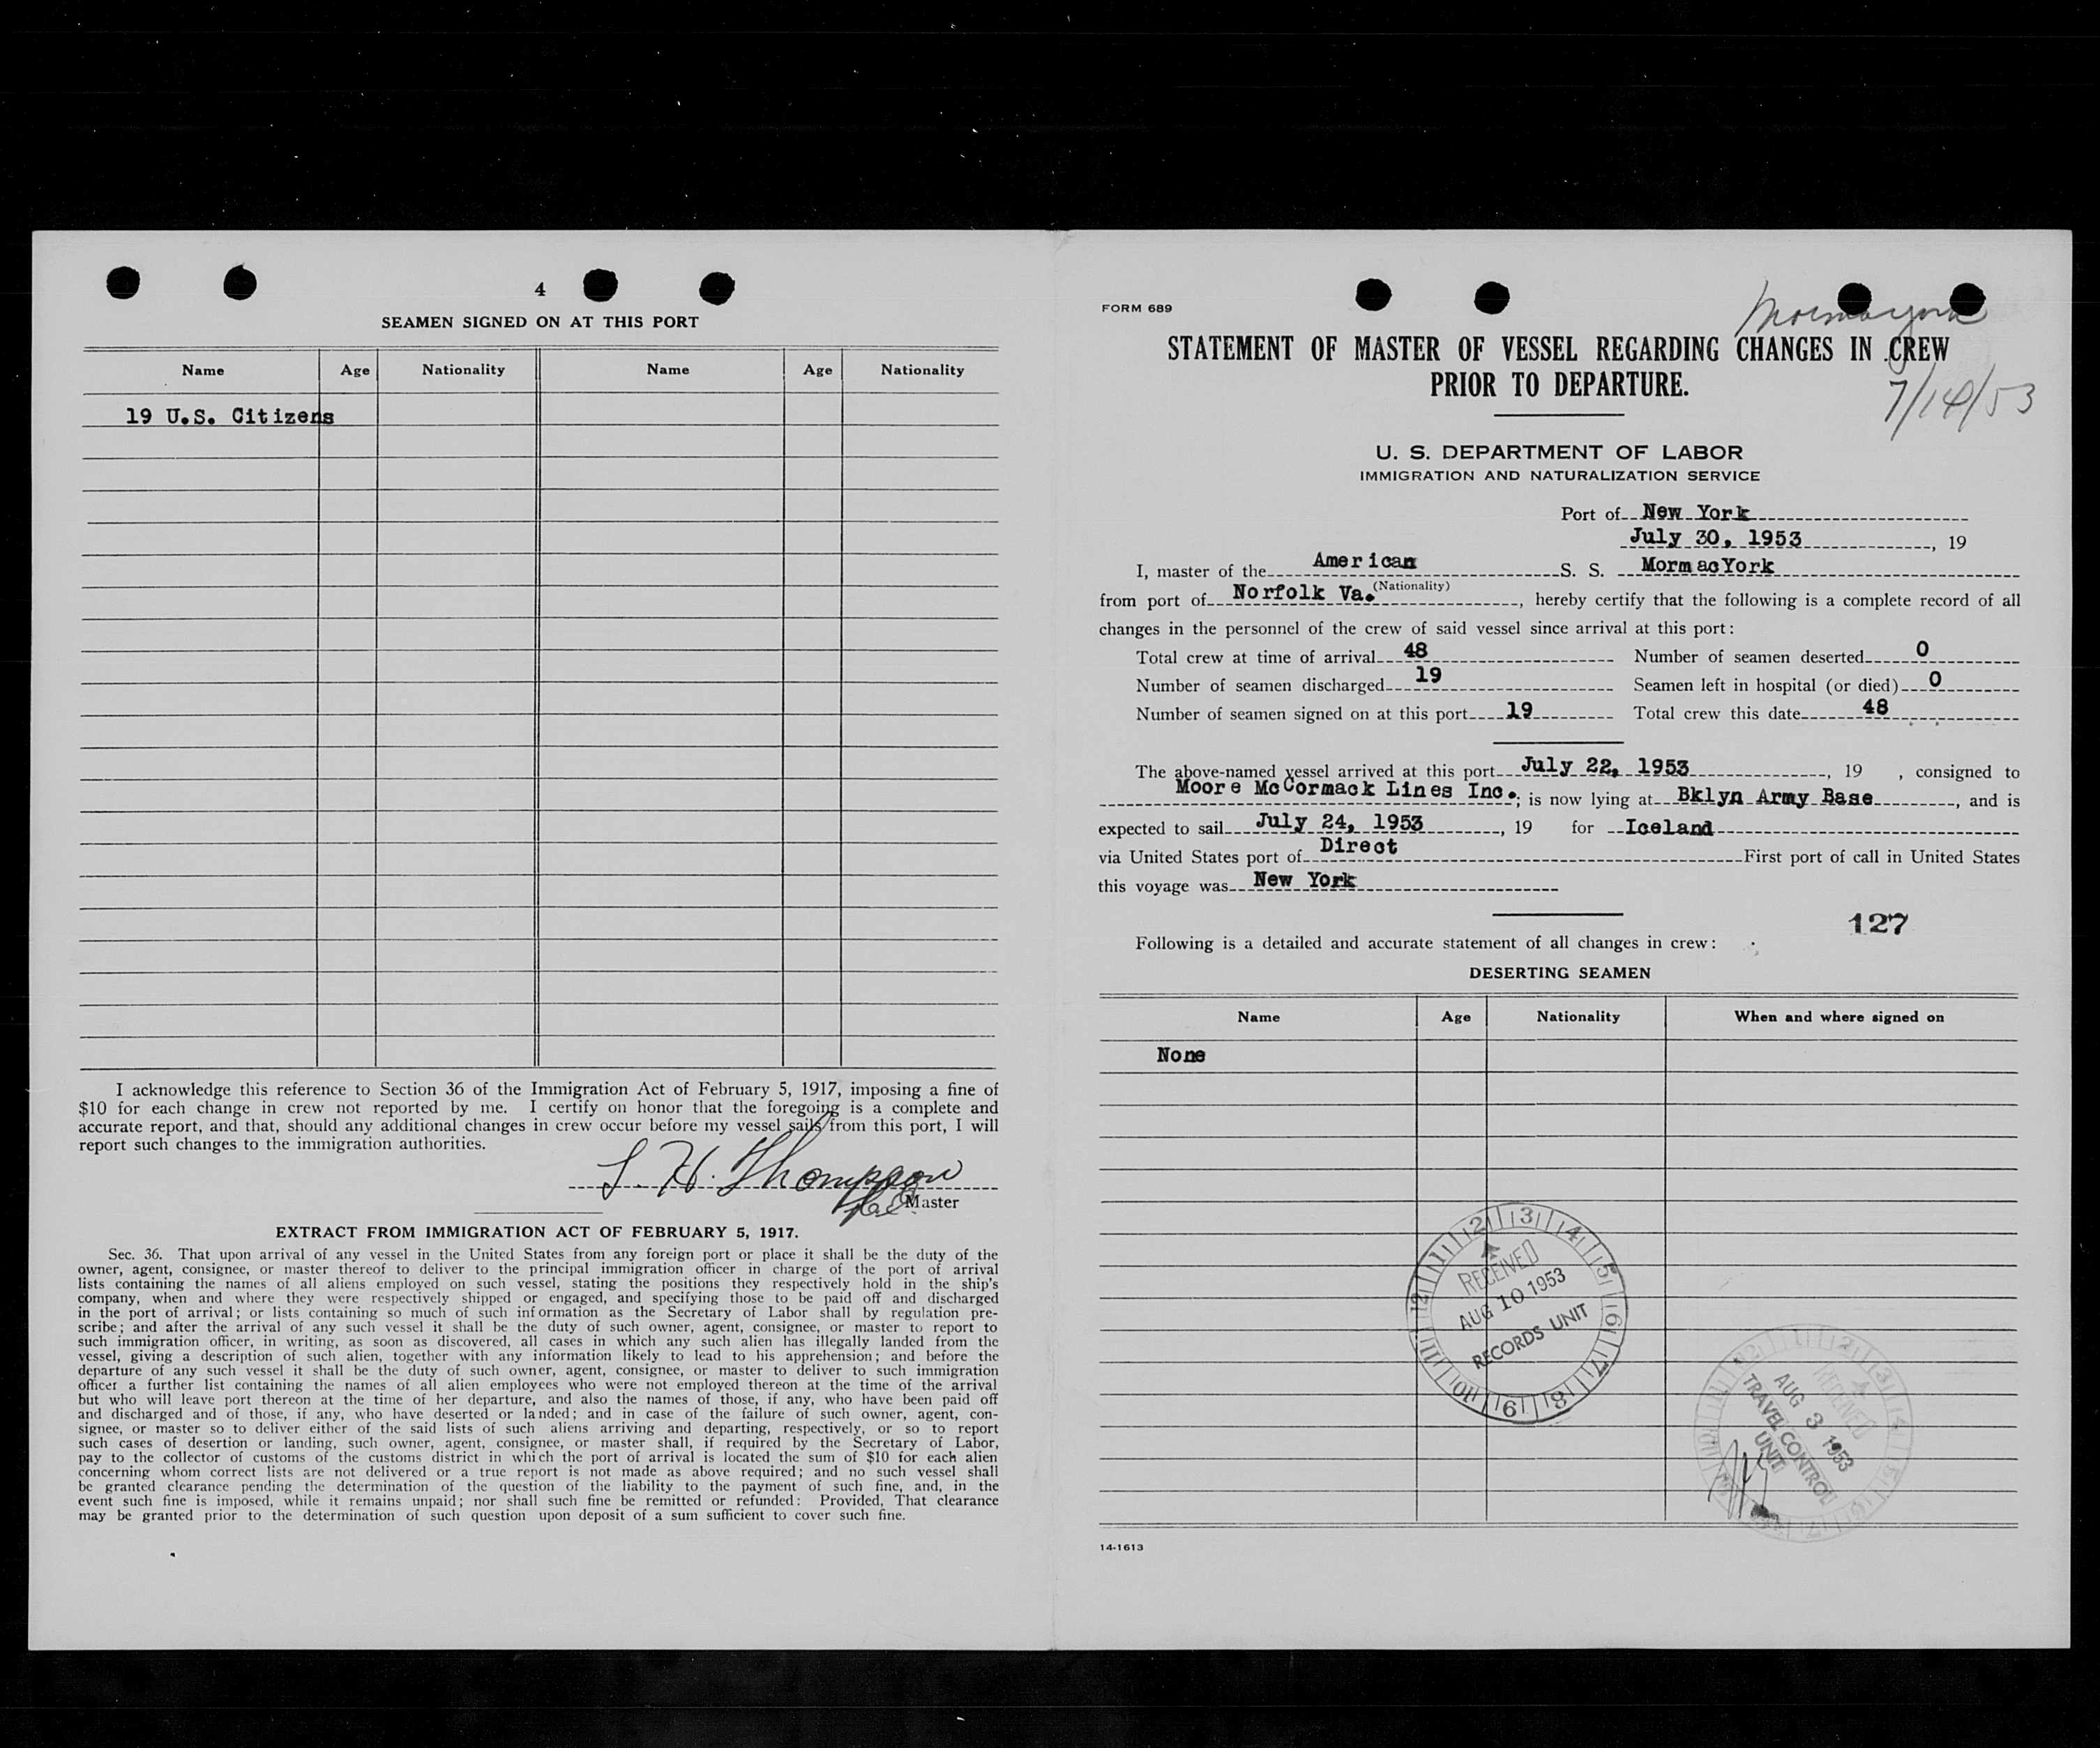 4
SEAMEN SIGNED ON AT THIS PORT
Name Age Nationality Name Age Nationality
19 U.S. Citizens
I acknowledge this reference to Section 36 of the Immigration Act of February 5, 1917, imposing a fine of
$10 for each change in crew not reported by me. I certify on honor that the foregoing is a complete and
accurate report, and that, should any additional changes in crew occur before my vessel sails from this port, I will
report such changes to the immigration authorities.
L. H. Thompson
Master
EXTRACT FROM IMMIGRATION ACT OF FEBRUARY 5, 1917.
Sec. 36. That upon arrival of any vessel in the United States from any foreign port or place it shall be the duty of the
owner, agent, consignee, or master thereof to deliver to the principal immigration officer in charge of the port of arrival
lists containing the names of all aliens employed on such vessel, stating the positions they respectively hold in the ship's
company, when and where they were respectively shipped or engaged, and specifying those to be paid off and discharged
in the port of arrival; or lists containing so much of such information as the Secretary of Labor shall by regulation pre-
scribe; and after the arrival of any such vessel it shall be the duty of such owner, agent, consignee, or master to report to
such immigration officer, in writing, as soon as discovered, all cases in which any such alien has illegally landed from the
vessel, giving a description of such alien, together with any information likely to lead to his apprehension; and before the
departure of any such vessel it shall be the duty of such owner, agent, consignee, or master to deliver to such immigration
officer a further list containing the names of all alien employees who were not employed thereon at the time of the arrival
but who will leave port thereon at the time of her departure, and also the names of those, if any, who have been paid off
and discharged and of those, if any, who have deserted or landed; and in case of the failure of such owner, agent, con-
signee, or master so to deliver either of the said lists of such aliens arriving and departing, respectively, or so to report
such cases of desertion or landing, such owner, agent, consignee, or master shall, if required by the Secretary of Labor,
pay to the collector of customs of the customs district in which the port of arrival is located the sum of $10 for each alien
concerning whom correct lists are not delivered or a true report is not made as above required; and no such vessel shall
be granted clearance pending the determination of the question of the liability to the payment of such fine, and, in the
event such fine is imposed, while it remains unpaid; nor shall such fine be remitted or refunded: Provided, That clearance
may be granted prior to the determination of such question upon deposit of a sum sufficient to cover such fine.
FORM 689
Mormacyork
STATEMENT OF MASTER OF VESSEL REGARDING CHANGES IN CREW
PRIOR TO DEPARTURE.
7/14/53
U. S. DEPARTMENT OF LABOR
IMMIGRATION AND NATURALIZATION SERVICE
Port of New York
July 30, 1953, 19
I, master of the American S. S. MormacYork
(Nationality)
from port of Norfolk Va., hereby certify that the following is a complete record of all
changes in the personnel of the crew of said vessel since arrival at this port:
Total crew at time of arrival 48 Number of seamen deserted 0
Number of seamen discharged 19 Seamen left in hospital (or died) 0
Number of seamen signed on at this port 19 Total crew this date 48
The above-named vessel arrived at this port July 22, 1953, 19 , consigned to
Moore McCormack Lines Inc.; is now lying at Bklyn Army Base, and is
expected to sail July 24, 1953, 19 for Iceland
via United States port of Direct First port of call in United States
this voyage was New York
127
Following is a detailed and accurate statement of all changes in crew:
DESERTING SEAMEN
Name Age Nationality When and where signed on
None
RECEIVED
AUG 10 1953
RECORDS UNIT
RECEIVED
AUG 3 1953
TRAVEL CONTROL
UNIT
14-1613